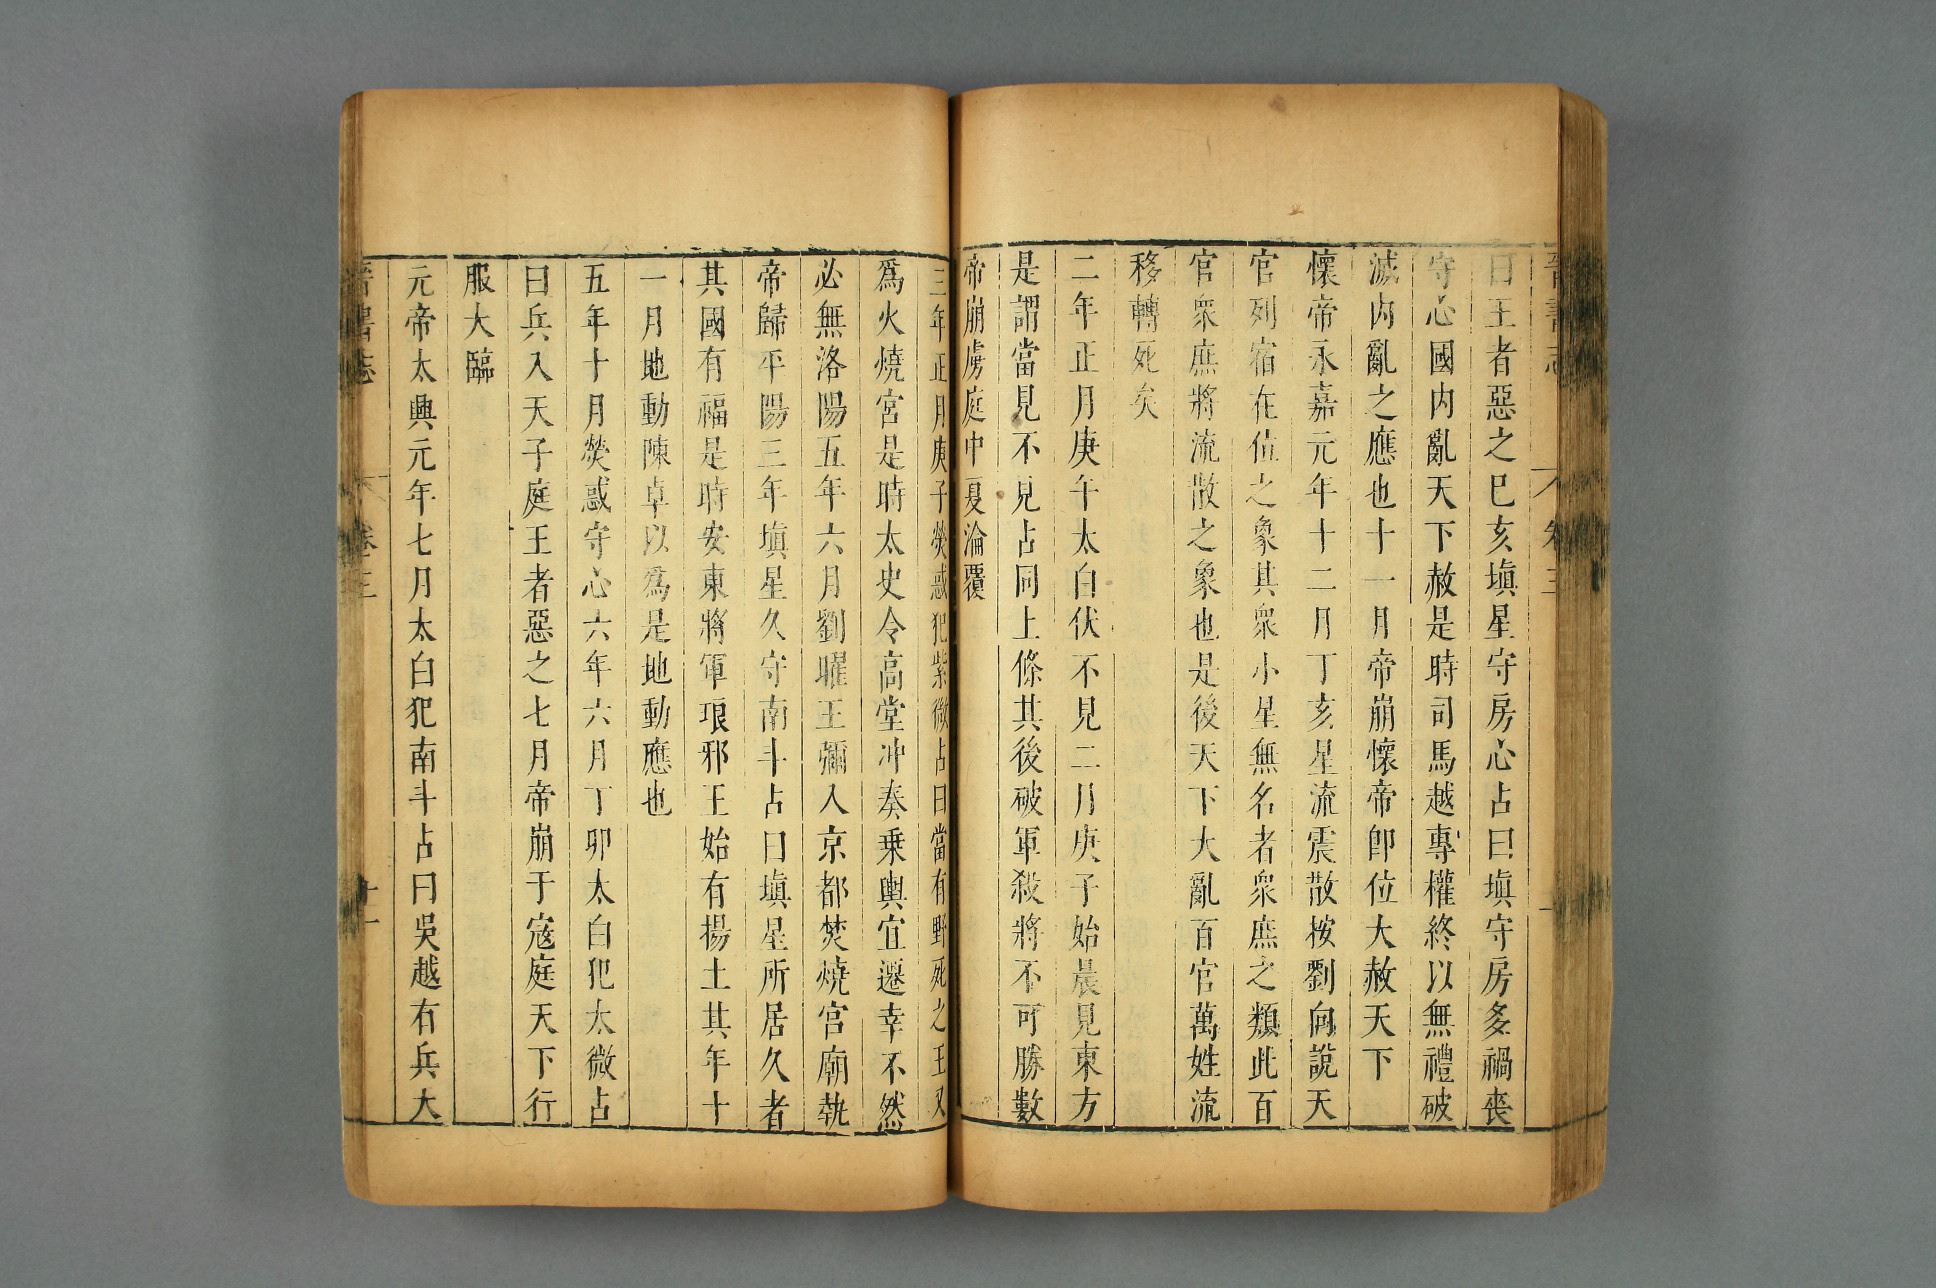 晉書志 卷三
曰王者惡之已亥塡星守房心占曰塡守房多禍喪
守心國內亂天下赦是時司馬越專權終以無禮破
滅內亂之應也十一月帝崩懷帝卽位大赦天下
懷帝永嘉元年十二月丁亥星流震散按劉向說天
官列宿在位之象其衆小星無名者衆庶之類此百
官衆庶將流散之象也是後天下大亂百官萬姓流
移轉死矣
二年正月庚午太白伏不見二月庚子始晨見東方
是謂當見不見占同上條其後破軍殺將不可勝數
帝崩虜庭中夏淪覆
三年正月庚子熒惑犯紫微占曰當有野死之王又
爲火燒宮是時太史令高堂沖奏乗輿宜遷幸不然
必無洛陽五年六月劉曜王彌入京都焚燒宮廟執
帝歸平陽三年塡星久守南斗占曰塡星所居久者
其國有福是時安東將軍琅邪王始有揚土其年十
一月地動陳卓以爲是地動應也
五年十月熒惑守心六年六月丁卯太白犯太微占
曰兵入天子庭王者惡之七月帝崩于寇庭天下行
服大臨
元帝太興元年七月太白犯南斗占曰吳越有兵大
晉書志 卷三 十一